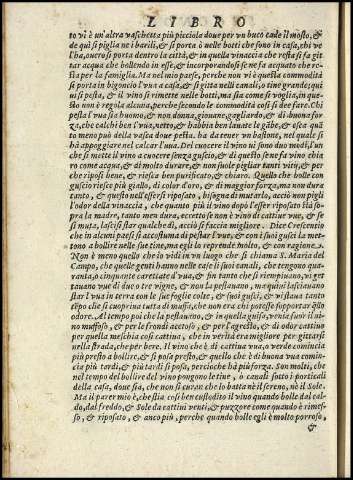 LIBRO
to vi è un'altra vaschetta più picciola doue per un buco cade il mosto, &
de quì si piglia ne i barili, & si porta ò nelle botti che sono in casa, chi ve
l'ha, ouero si porta dentro la città, & in quella vinaccia che resta si fa git
tar acqua che bollendo in esse, & incorporandosi se ne fa acquato che re-
sta per la famiglia. Ma nel mio paese, perche non vi è questa commodità
si porta in bigoncio l'vua a casa, & si gitta nelli canali, o tine grande; qui
ui si pesta, & il vino si rimette nelle botti, ma sia come si voglia, in que-
sto non è regola alcuna, perche secondo le commodità così si dee fare. Chi
pesta l'vua sia huomo, & non donna, giouane, gagliardo, & di buona for
za, che calchi ben l'vua, netto, & habbia ben lauate le gābe, & esca quā
to meno può della vasca doue pesta. ha da tener un bastone, nel quale si
hà appoggiare nel calcar l'vua. Del cuocere il vino vi sono due modi, l'vn
che si mette il vino a cuocere senza guscio, & di questo se ne fa vino chia
ro come acqua, & di molto durare, & non suole pigliar tanti vitij, & per
che riposi bene, & riesca ben purificato, & chiaro. Quello che bolle con
guscio riesce più giallo, di color d'oro, & di maggior forza, ma non dura
tanto, & questo nell'essersi riposato, bisogna di mutarlo, acciò non pigli
l'odor della vinaccia, che quanto più il vino dopò l'esser riposato stà so-
pra la madre, tanto men dura, eccetto se non è vino di cattiue vue, & se
si muta, lascisi star qualche dì, acciò si faccia migliore. Dice Crescentio
che in alcuni paesi si accostuma di pestar l'vue, & con i suoi gusci la met-
tono a bollire nelle sue tine, ma egli lo reprende molto, & con ragione.
Non è meno quello che io vidi in vn luogo che si chiama S. Maria del
Campo, che quelle genti hanno nelle case li suoi canali, che tengono qua-
ranta, o cinquanta carettate d'vua, & fin tanto che si riempiuano, vi get
tauano vue di duo o tre vigne, & non la pestauano, ma quiui lasciauano
star l'vua in terra con le sue foglie colte, & suoi gusci, & vi staua tanto
tēpo che si cuopriua tutta di muffa, che non era chi potesse sopportar q̄llo
odore. Al tempo poi che la pestauano, & in quella guisa, veniua fuor il vi-
no muffoso, & per le frondi acetoso, & per l'agresto, & di odor cattiuo
per quella meschia così cattiua, che in verità era migliore per gittarsi
nella strada, che per bere. Il vino che è di cattiua vua, o verde comincia
più presto a bollire, & si posa presto, & quello che è di buona vua comin-
cia più tardi, & più tardi si posa, percioche hà più forza. Son molti, che
nel tempo del bollire del vino pongono le tine, ò canali sotto i porticali
della casa, doue sia, che non si curan che lo batta nè il sereno, nè il Sole.
Ma il parer mio è, che stia così ben custodito il vino quando bolle dal cal-
do, dal freddo, & Sole da cattiui venti, & puzzore come quando è rimes-
so, & riposato, & anco più, perche quando bolle egli è molto poroso,
&